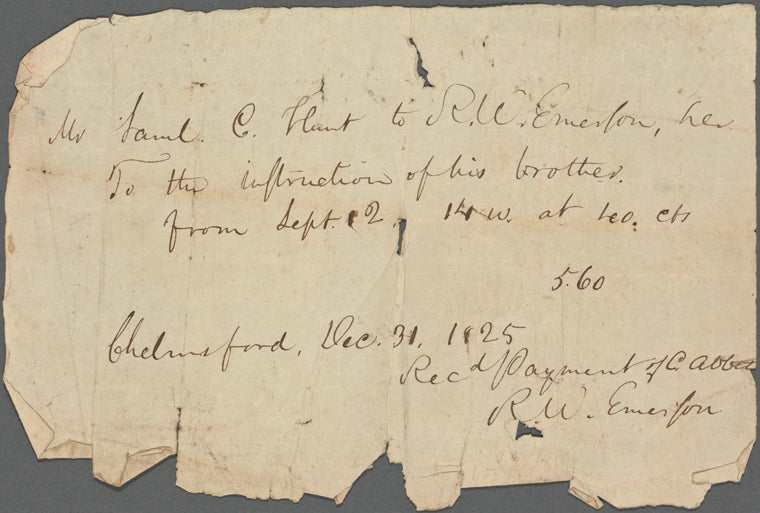 Mr Saml. C. Hunt to R. W. Emerson,
To the instruction of his brother.
from Sept. 12. 14 w. at 40. cts
5.60
Chelmsford, Dec. 31, 1825
Recd Payment of C. Abbot
R. W. Emerson